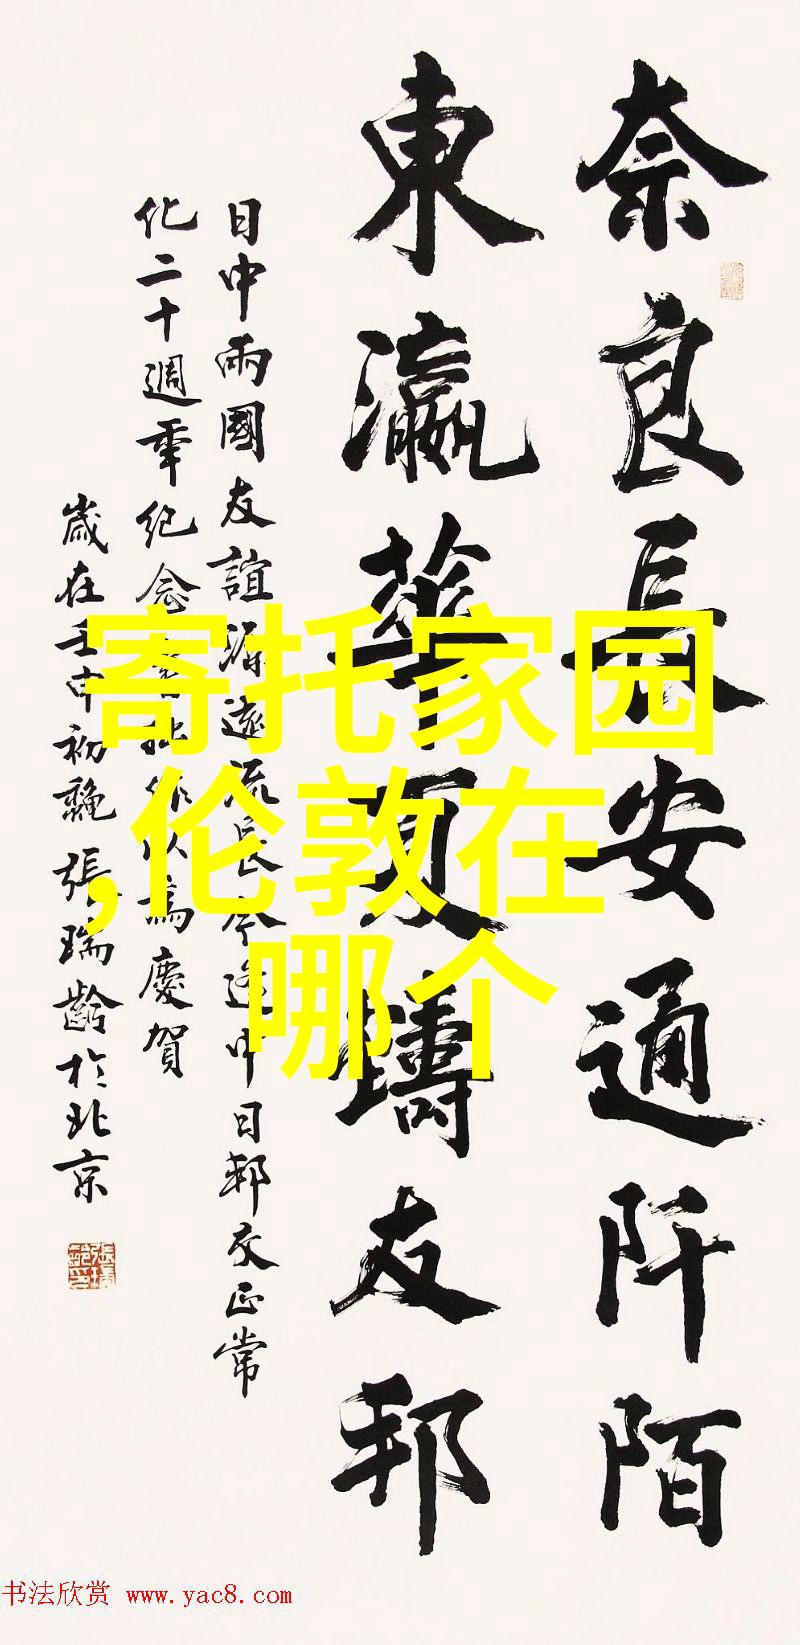 奈良長安通阡陌
東瀛華夏鑄友邦
日中兩國友誼源遠流長今逢中日邦交正常
化二十週年紀念 作以為慶賀
歲在壬申初 張瑞齡於北京
寄托家园
,伦敦在
哪个
书法欣赏 www.yac8.com